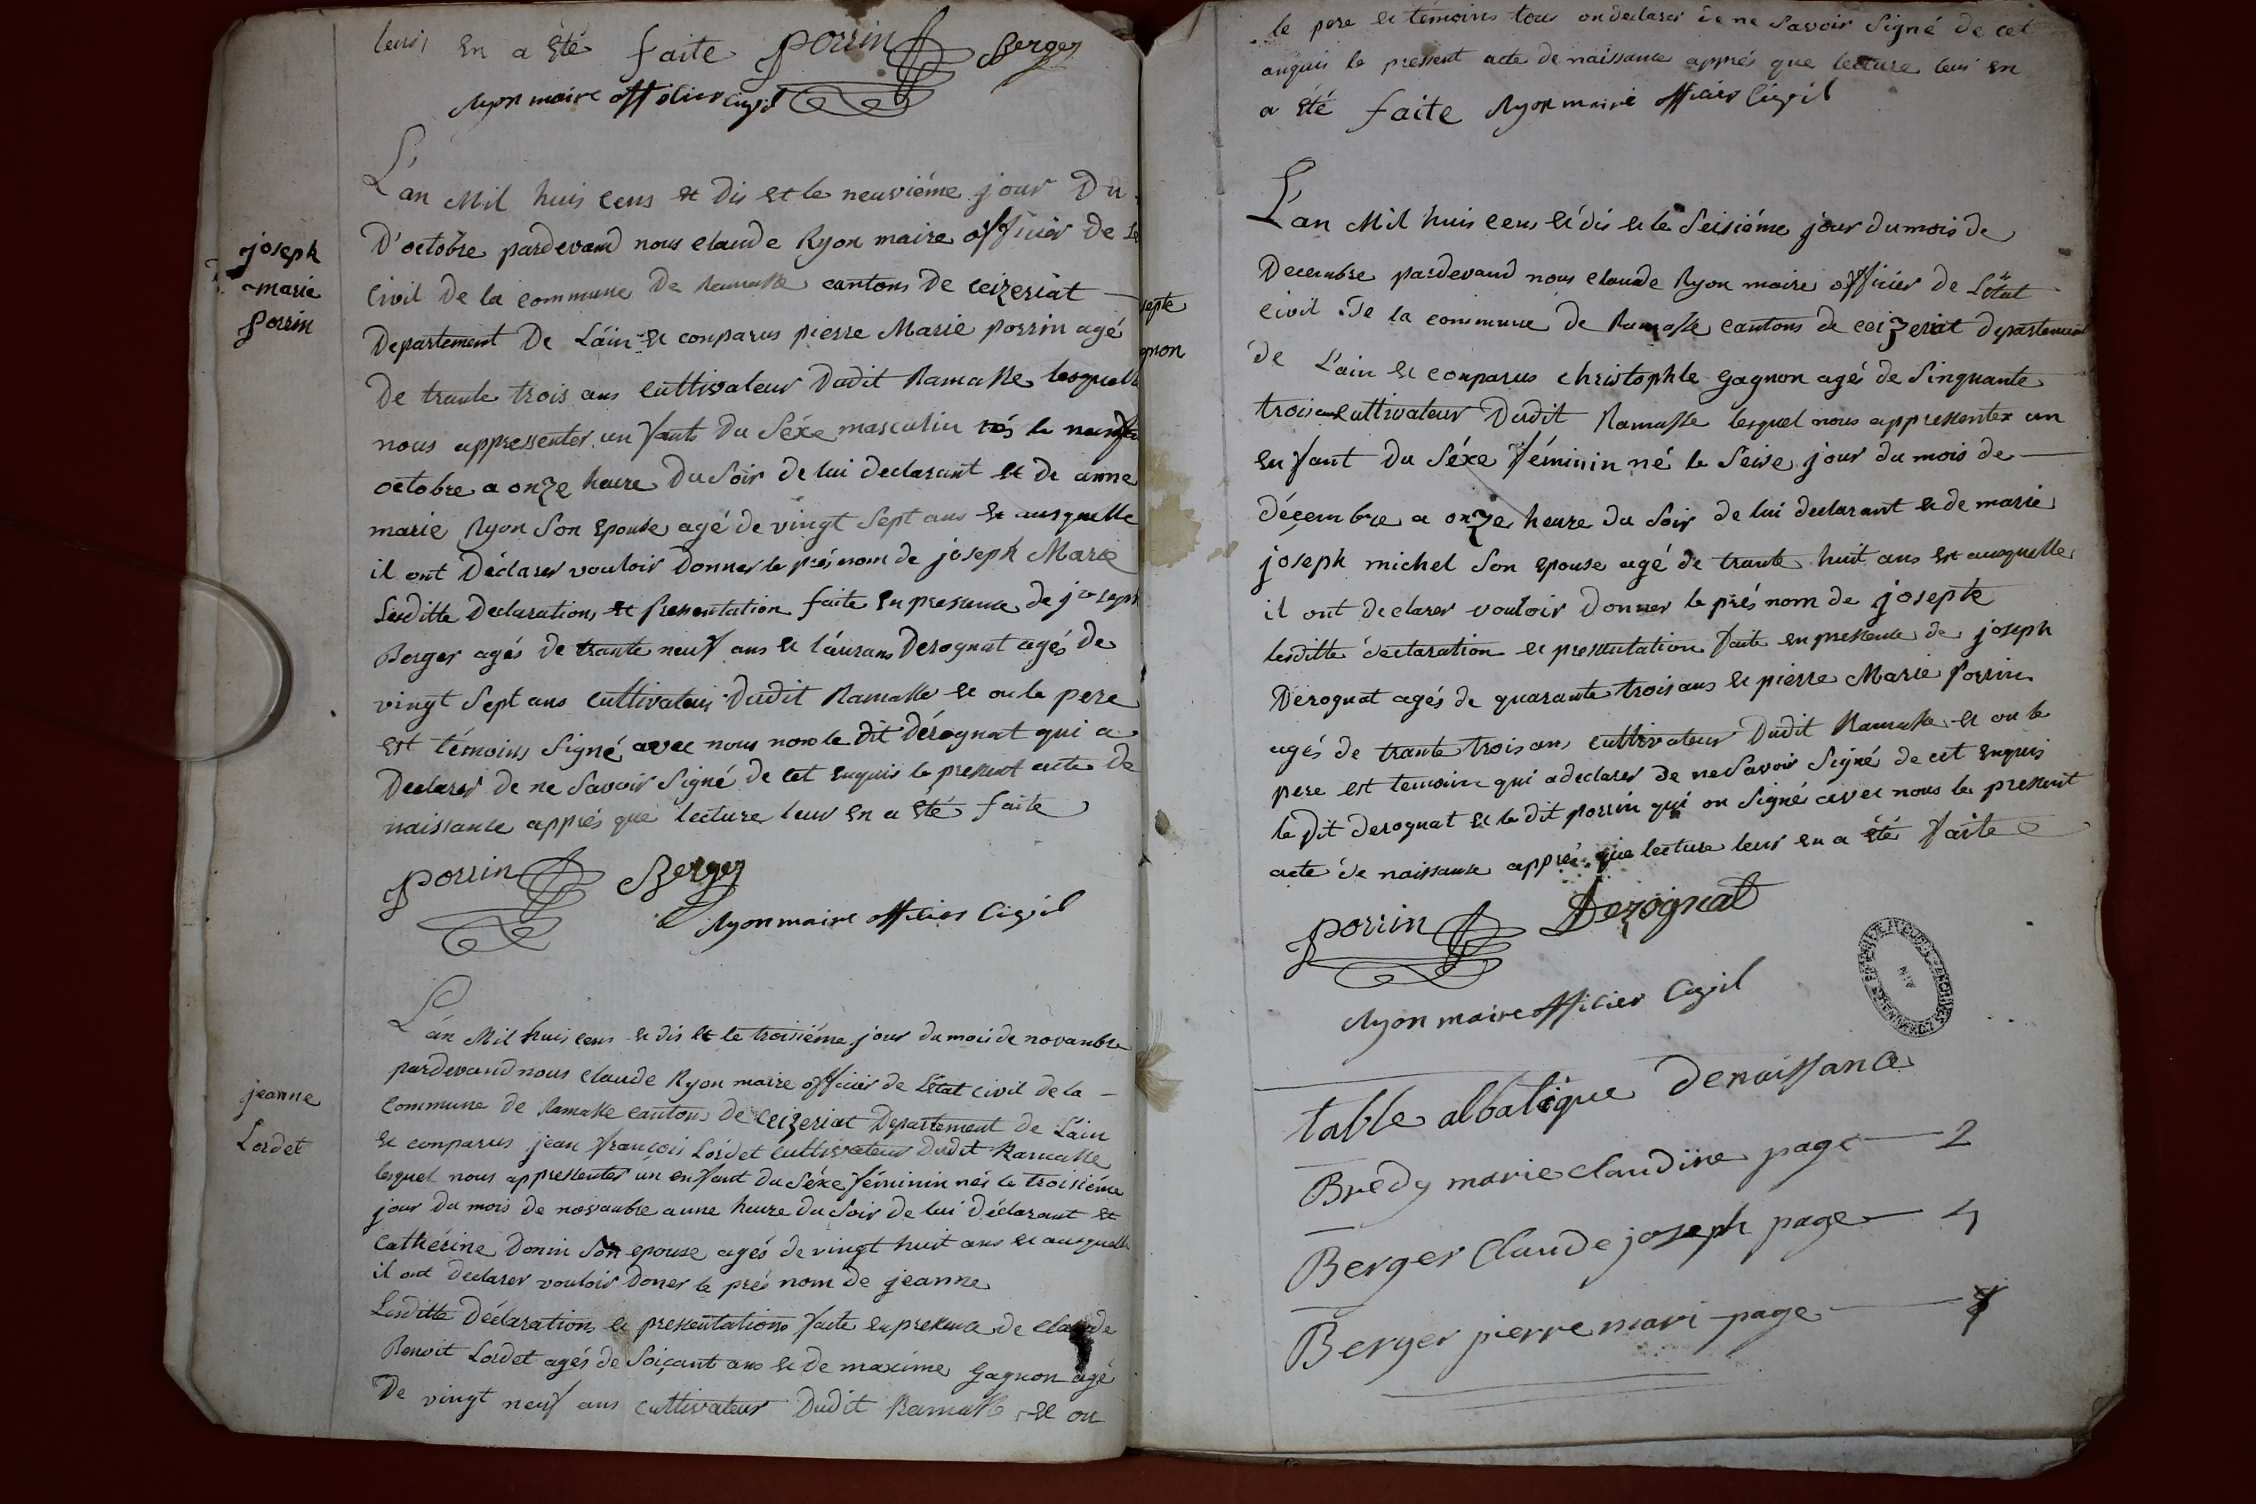 leur en a été faite Porrin Berger
Ryon maire officier civil
joseph
marie
Porrin
L'an Mil huis cens et dis et le neuviéme jour Du
D'octobre pardevand nous claude Ryon maire officier de
Civil De la commune De Ramasse cantons De ceizeriat
Departement De L'ain et conparus pierre Marie porrin agé
De trante trois ans cultivateur Dudit Ramasse lesquel
nous appressenter un fant Du Séxe masculin nés le neuf
octobre a onze heure Du Soir de lui declarant et de anne
marie Ryon Son Epouse agé de vingt Sept ans et ausquelle
il ont Déclarer vouloir Donner le prés nom de joseph Marie
Lesditte Declarations et Presentation faite En presence de joseph
Berger agés De trante neuf ans et laurans Derognat agés de
vingt Sept ans cultivateur Dudit Ramasse et on le pere
est témoins Signé avec nous non le dit Dérognat qui a
Declarer de ne Savoir Signé de cet Enquis le present acte De
naissance apprés que lecture leur en a Eté faite
Porrin Berger
Ryon maire officier Civil
jeanne
Lordet
L'an Mil huis cens et dis et le troisiéme jour du mois de novanbre
pardevand nous claude Ryon maire officier de L'état civil de la
Commune de Ramasse cantons de Ceizeriat Departement de L'ain
et conparus jean françois Lordet cultivateur Dudit Ramasse
lesquel nous appressenter un enfant du Séxe féminin nés le troisiéme
jour du mois de novanbre a une heure du Soir de lui Déclarant et
Cathérine Donin Son epouse agés de vingt huit ans et ausquelle
il ont declarer vouloir doner le prés nom de jeanne
Lesditte Déclarations et pressentations faite en presence de claude
Benoit Lordet agés de Soiçant ans et de maxime Gagnon agé
De vingt neuf ans cultivateur Dudit Ramasse et on
le pere et témoins tous on declarer de ne Savoir Signé de cet
anquis le pressent acte de naissance apprés que lecture leur en
a été faite Ryon maire officier Civil
septe
gnon
L'an Mil huis cens et dis et le Seisiéme jour du mois de
Decembre pardevand nous claude Ryon maire officier de L'état
civil De la commune de Ramasse cantons de ceizeriat Departement
de L'ain et conparus christophle Gagnon agés de Sinquante
trois ans cultivateur Dudit Ramasse lesquel nous appressenter un
enfant Du Séxe féminin né le Seise jour du mois de
décembre a onze heure du Soir de lui declarant et de marie
joseph michel Son epouse agé de trante huit ans et ausquelle
il ont declarer vouloir Donner le prés nom de josepte
lesditte déclaration et pressentation faite en pressence de joseph
Derognat agés de quarante trois ans et pierre Marie Porrin
agés de trante trois ans cultivateur Dudit Ramasse et on le
pere est temoin qui a declarer de ne Savoir Signé de cet enquis
le dit derognat et le dit porrin qui on Signés avec nous le pressent
acte de naissance apprés que lecture leur en a été faite
Porrin Dérognat
Ryon maire officier Civil
table albatique De naissance
Bredy marie claudine page 2
Berger Claude joseph page 4
Berger pierre mari page